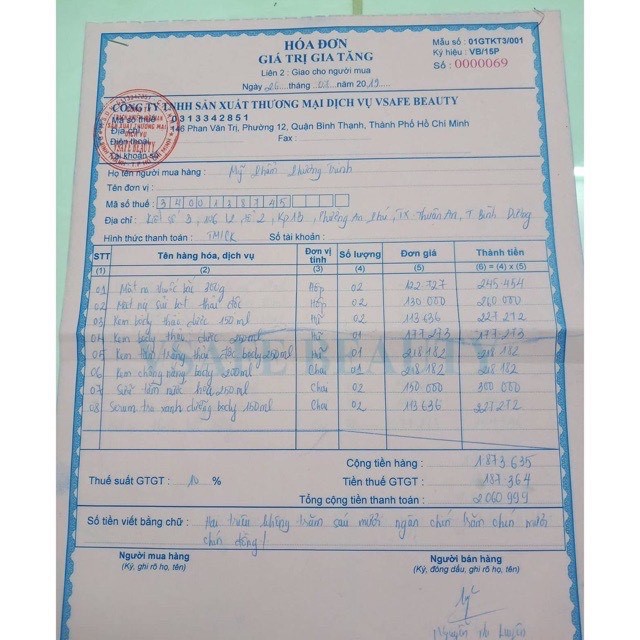 HÓA ĐƠN
GIÁ TRỊ GIA TĂNG
Liên 2 : Giao cho người mua
Ngày 26 tháng 08 năm 2019
Mẫu số : 01GTKT3/001
Ký hiệu : VB/15P
Số : 0000069
CÔNG TY TNHH SẢN XUẤT THƯƠNG MẠI DỊCH VỤ VSAFE BEAUTY
Mã số thuế 0313342851
Địa chỉ 146 Phan Văn Trị, Phường 12, Quận Bình Thạnh, Thành Phố Hồ Chí Minh
Điện thoại Fax :
Tài khoản số
VSAFE BEAUTY
Họ tên người mua hàng : Mỹ Phương
Tên đơn vị :
Mã số thuế : 3400128745
Địa chỉ : 3, 2, Kp 1B, Phường An Phú, TX Thuận An, T Bình Dương
Hình thức thanh toán : TM/CK Số tài khoản :
STT Tên hàng hóa, dịch vụ Đơn vị tính Số lượng Đơn giá Thành tiền
(1) (2) (3) (4) (5) (6) = (4) x (5)
01 Mặt nạ thuốc bắc 300g Hộp 02 122 727 245 454
02 Mặt nạ Hộp 02 130 000 260 000
03 Kem body thảo dược 150ml Hũ 02 113 636 227 272
04 Kem body thảo dược 250ml Hũ 01 177 273 177 273
05 Kem trắng body 250ml Hũ 01 218 182 218 182
06 Kem chống nắng body 200ml Chai 01 218 182 218 182
07 Sữa tắm nước hoa 250ml Chai 02 150 000 300 000
08 Serum trà xanh dưỡng body 150ml Chai 02 113 636 227 272
VSAFE BEAUTY
Cộng tiền hàng : 1 873 635
Thuế suất GTGT : 10 % Tiền thuế GTGT : 187 364
Tổng cộng tiền thanh toán : 2 060 999
Số tiền viết bằng chữ : Hai triệu không trăm sáu mươi ngàn chín trăm chín mươi
chín đồng
Người mua hàng Người bán hàng
(Ký, ghi rõ họ, tên) (Ký, đóng dấu, ghi rõ họ, tên)
Nguyễn